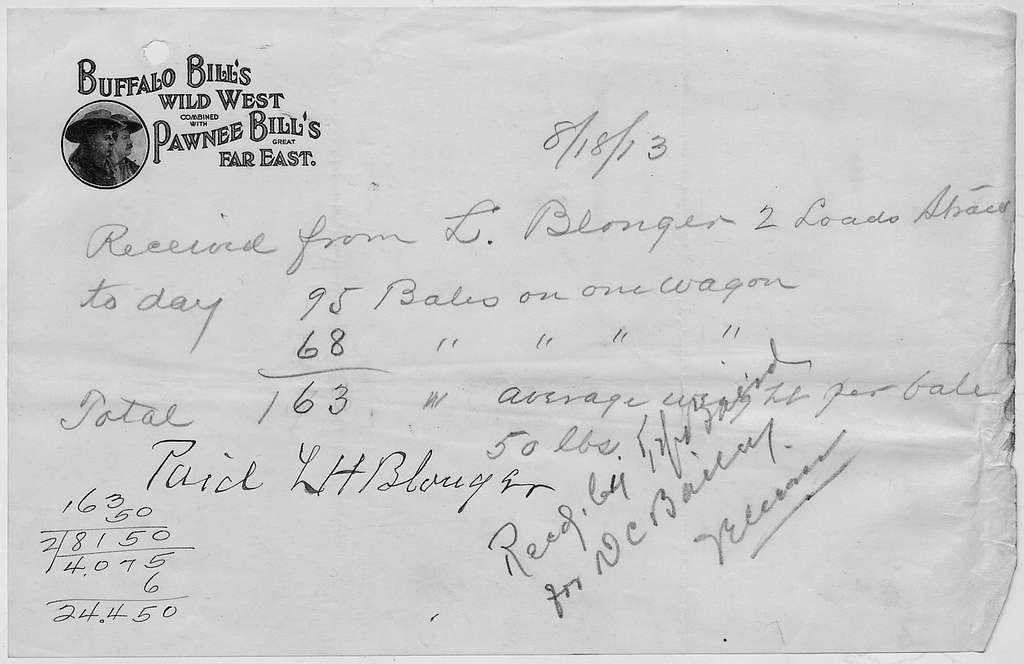 BUFFALO BILL'S
WILD WEST
COMBINED
WITH
PAWNEE BILL'S
GREAT
FAR EAST.
8/18/13
Received from L. Blonger 2 Loads Straw
to day 95 Bales on one wagon
68 " " " "
Total 163 " average weight per bale
50 lbs.
Paid L H Blonger
Recd. by
for D C Bailey.
163
50
2/8150
4.075
6
24.450